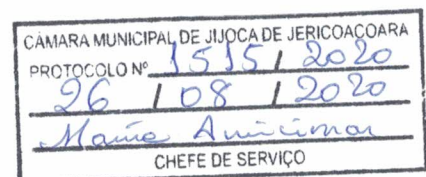 CÂMARA MUNICIPAL DE JIJOCA DE JERICOACOARA
PROTOCOLO Nº 1515 / 2020
26 / 08 / 2020
Maria
CHEFE DE SERVIÇO